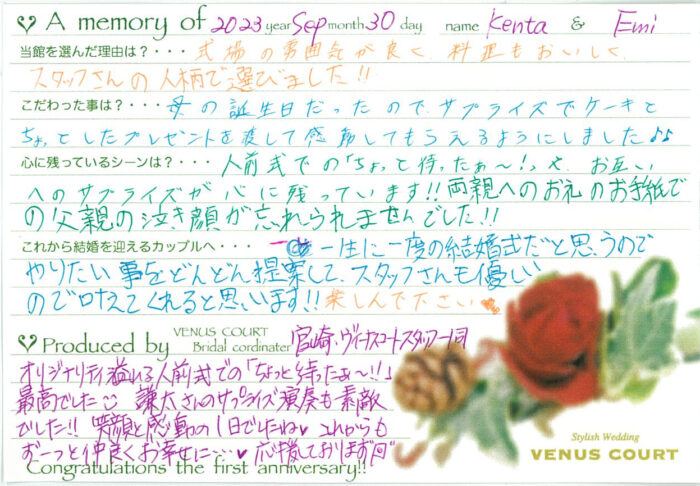 A memory of 2023 year Sep month 30 day name Kenta & Emi
当館を選んだ理由は？・・・式場の雰囲気が良く、料理もおいしく、
スタッフさんの人柄で選びました!!
こだわった事は？・・・母の誕生日だったので、サプライズでケーキと
ちょっとしたプレゼントを渡して感動してもらえるようにしました♪♪
心に残っているシーンは？・・・人前式での「ちょっと待ったぁ〜！」や、お互い
へのサプライズが心に残っています!!両親へのお礼のお手紙で
の父親の泣き顔が忘れられませんでした!!
これから結婚を迎えるカップルへ・・・一生に一度の結婚式だと思うので
やりたい事をどんどん提案して、スタッフさんも優しい
ので叶えてくれると思います!!楽しんで下さい
Produced by VENUS COURT Bridal cordinater 宮崎、ヴィーナスコートスタッフ一同
オリジナリティ溢れる人前式での「ちょっと待ったぁ〜!!」
最高でした 謙太さんのサプライズ演奏も素敵
でした!! 笑顔と感動の1日でしたね♥ これからも
ずーっと仲良くお幸せに…♥ 応援しております
Congratulations the first anniversary!!
Stylish Wedding
VENUS COURT